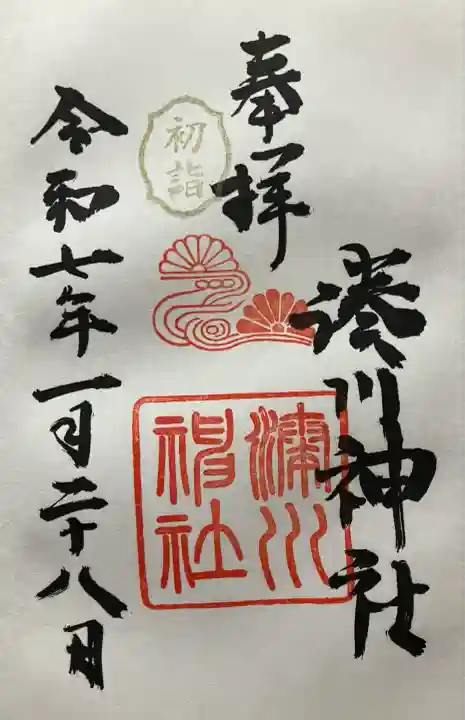 奉拝
湊川神社
初詣
湊川
神社
令和七年一月二十八日